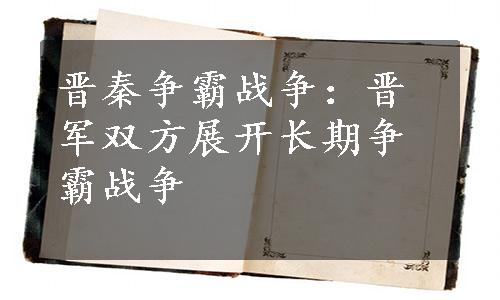 晋秦争霸战争：晋
军双方展开长期争
霸战争